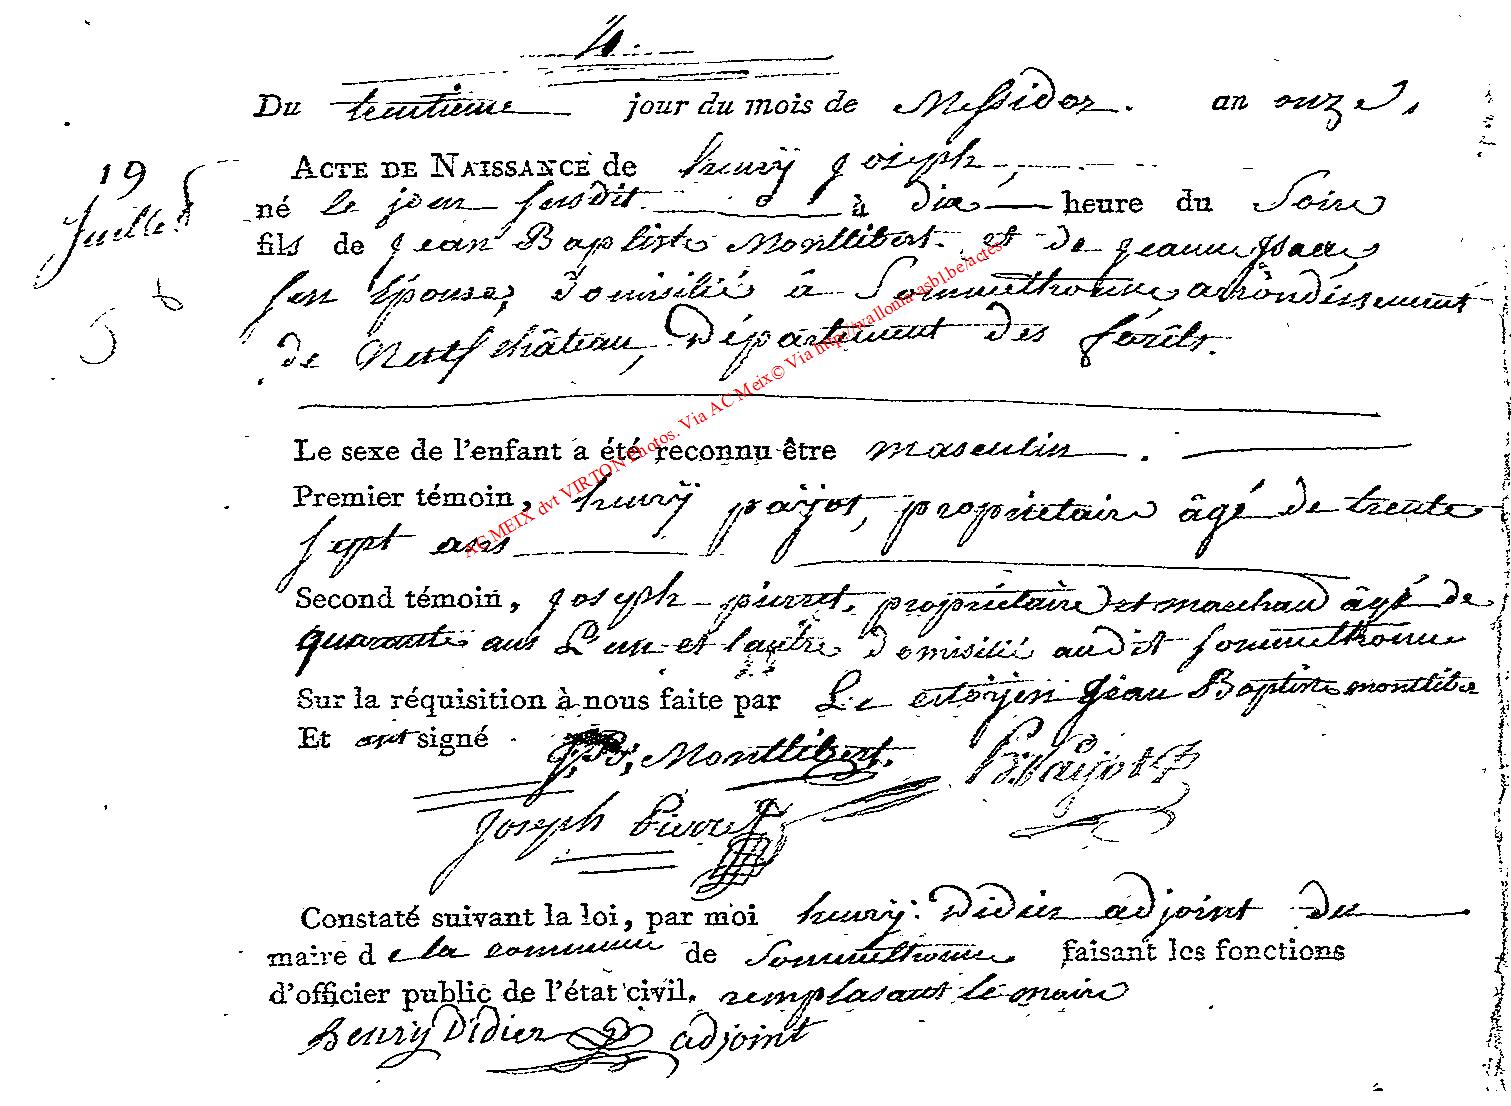 4.
Du trentieme jour du mois de Messidor. an onze.
19
Juillet
ACTE DE NAISSANCE de henrÿ joseph,
né le jour susdit à dix heure du Soire
fils de jean Baptiste Montlibert. et de jeanne jsaac,
son Épouse, domisilié à Sommethonne arrondissement
de Neufchâteau, Département des forêts.
Le sexe de l'enfant a été reconnu être masculin.
Premier témoin, henrÿ païjot, propriétaire âgé de trente
sept ans
Second témoin, joseph pierret, propriétaire et marchand âgé de
quarante ans L'un et l'autre domisilié audit sommethonne
Sur la réquisition à nous faite par Le citoÿen jean Baptiste montlibe
Et ont signé J. Bt, Montlibert. h: païjot
joseph pierret
Constaté suivant la loi, par moi henrÿ Didier adjoint du
maire de la commune de Sommethonne faisant les fonctions
d'officier public de l'état civil, remplasant le maire
henrÿ Didier adjoint
AC MEIX dvt VIRTON Photos. Via AC Meix© Via http://wallonia-asbl.be/actes